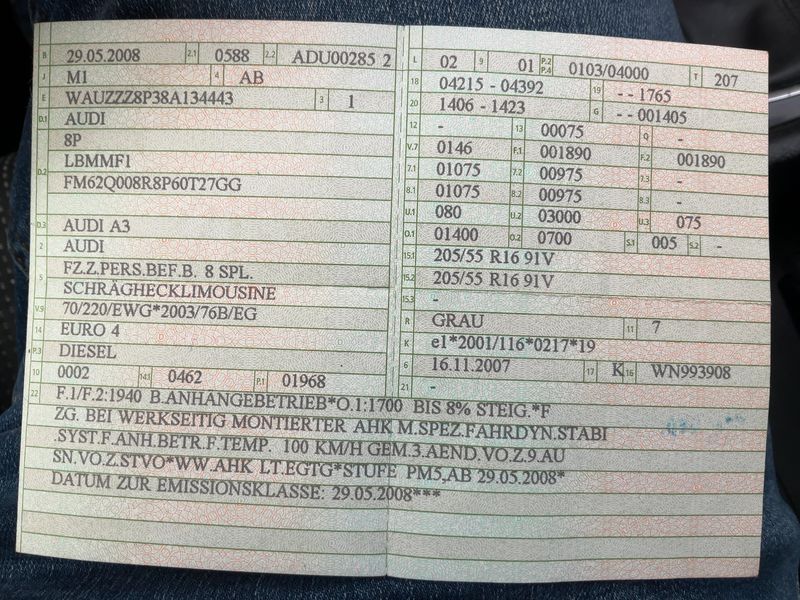 B 29.05.2008 2.1 0588 2.2 ADU00285 2
J M1 4 AB
E WAUZZZ8P38A134443 3 1
D.1 AUDI
8P
D.2 LBMMF1
FM62Q008R8P60T27GG
D.3 AUDI A3
2 AUDI
5 FZ.Z.PERS.BEF.B. 8 SPL.
SCHRÄGHECKLIMOUSINE
V.9 70/220/EWG*2003/76B/EG
14 EURO 4
P.3 DIESEL
10 0002 14.1 0462 P.1 01968
L 02 9 01 P.2 P.4 0103/04000 T 207
18 04215 - 04392 19 - - 1765
20 1406 - 1423 G - - 001405
12 - 13 00075 Q -
V.7 0146 F.1 001890 F.2 001890
7.1 01075 7.2 00975 7.3 -
8.1 01075 8.2 00975 8.3 -
U.1 080 U.2 03000 U.3 075
O.1 01400 O.2 0700 S.1 005 S.2 -
15.1 205/55 R16 91V
15.2 205/55 R16 91V
15.3 -
R GRAU 11 7
K e1*2001/116*0217*19
6 16.11.2007 17 K 16 WN993908
21 -
22 F.1/F.2:1940 B.ANHÄNGEBETRIEB*O.1:1700 BIS 8% STEIG.*F
ZG. BEI WERKSEITIG MONTIERTER AHK M.SPEZ.FAHRDYN.STABI
.SYST.F.ANH.BETR.F.TEMP. 100 KM/H GEM.3.AEND.VO.Z.9.AU
SN.VO.Z.STVO*WW.AHK LT.EGTG*STUFE PM5,AB 29.05.2008*
DATUM ZUR EMISSIONSKLASSE: 29.05.2008***